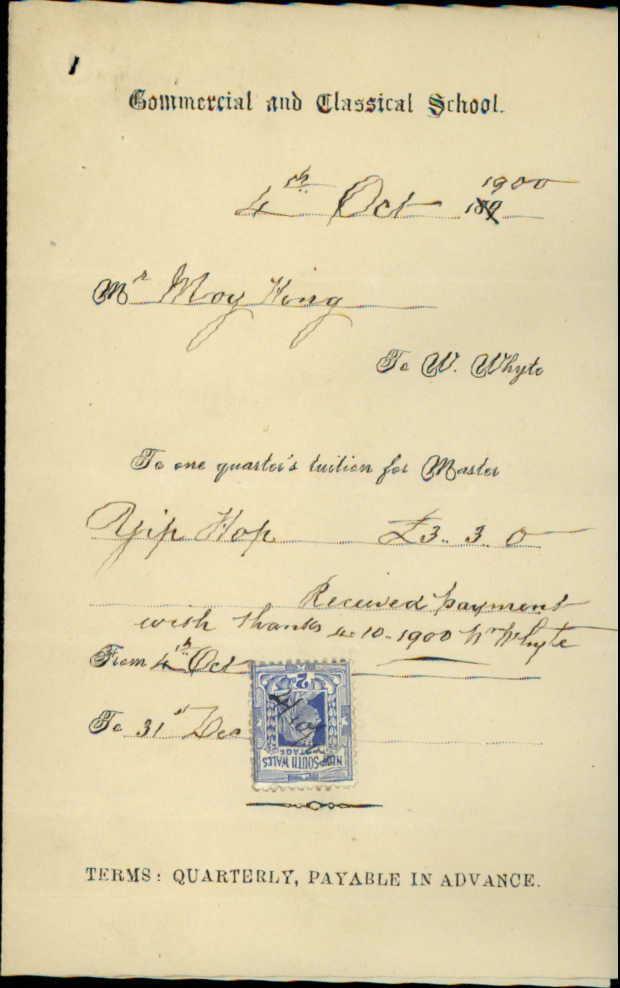 1
Commercial and Classical School.
4th Oct 1900 189
Mr Moy King
To W. Whyte
To one quarter's tuition for Master
Yip Hop £3.. 3.. 0
Received payment
with thanks 4-10-1900 Wm Whyte
From 4th Oct
To 31st Dec
2
POSTAGE
NEW SOUTH WALES
TERMS: QUARTERLY, PAYABLE IN ADVANCE.